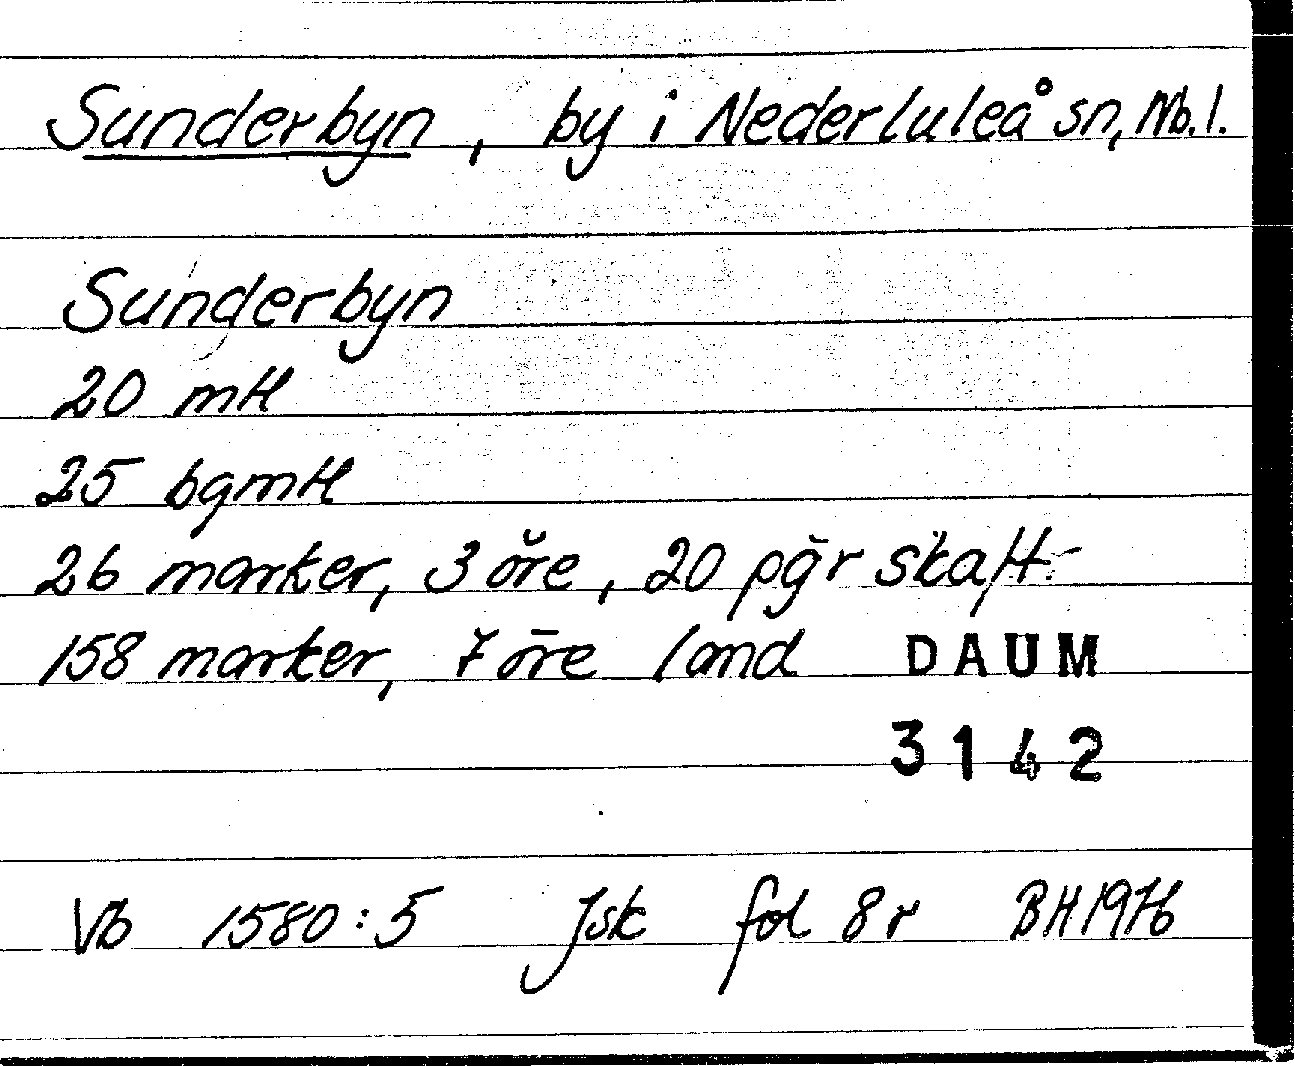 Sunderbyn, by i Nederluleå sn, Nb. l.
Sunderbyn
20 mtl
25 bgmtl
26 marker, 3 öre, 20 pg̃r skatt
158 marker, 7 öre land DAUM
3142
Vb 1580:5 Jsk fol 8 r BH 1976